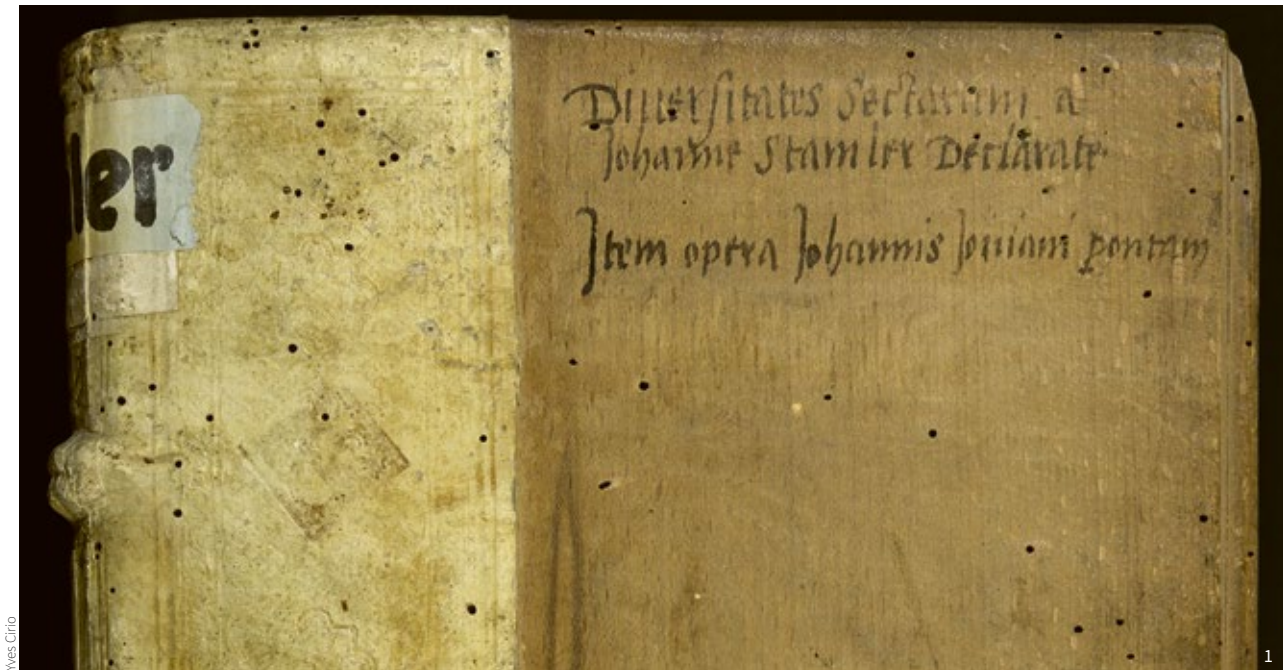 ler
Diuersitates Sectarum a
Johanne Stamler Declarate
Item opera Johannis Jouiani pontani
Yves Cirio
1